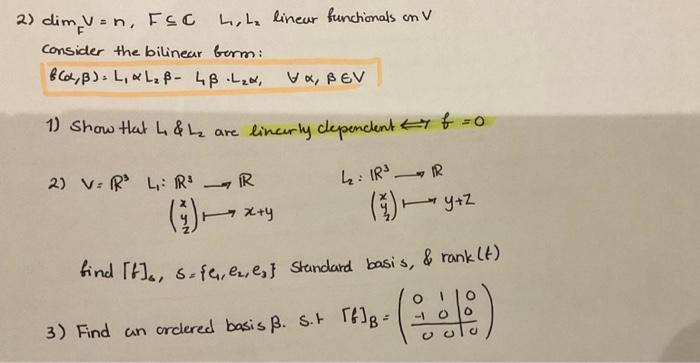 2) dim_F V = n, F ⊆ C L₁, L₂ linear functionals on V
Consider the bilinear form:
f(α,β) = L₁α L₂β - L₁β · L₂α, ∀ α, β ∈ V
1) Show that L₁ & L₂ are linearly dependent ⟺ f = 0
2) V = ℝ³ L₁: ℝ³ → ℝ L₂: ℝ³ → ℝ
(x y z) ↦ x+y (x y z) ↦ y+z
find [f]ₛ, S = {e₁, e₂, e₃} standard basis, & rank(f)
3) Find an ordered basis β. s.t [f]_B = ( 0 1 | 0
-1 0 | 0
0 0 | 0 )